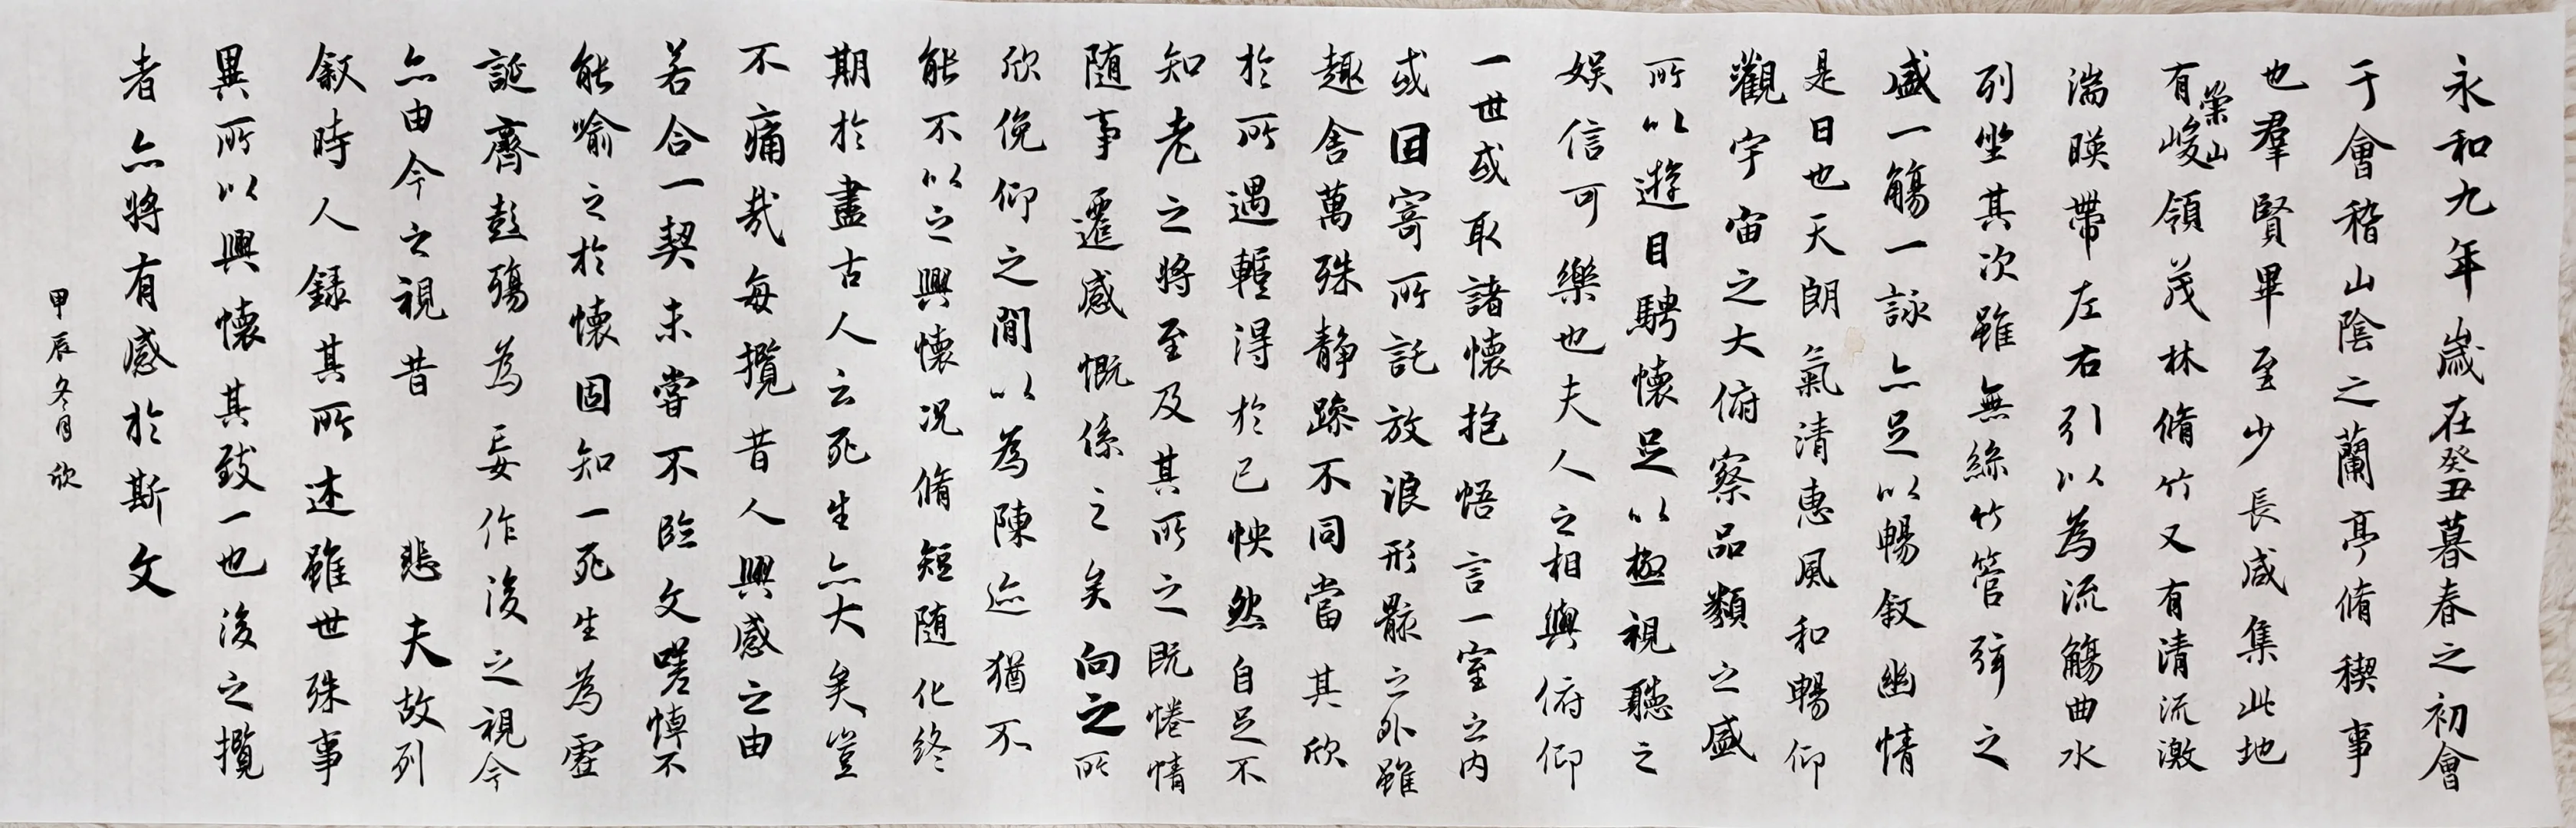 永和九年歲在癸丑暮春之初會
于會稽山陰之蘭亭脩稧事
也羣賢畢至少長咸集此地
有崇山峻領茂林脩竹又有清流激
湍暎帶左右引以為流觴曲水
列坐其次雖無絲竹管弦之
盛一觴一詠亦足以暢叙幽情
是日也天朗氣清惠風和暢仰
觀宇宙之大俯察品類之盛
所以遊目騁懷足以極視聽之
娛信可樂也夫人之相與俯仰
一世或取諸懷抱悟言一室之内
或因寄所託放浪形骸之外雖
趣舍萬殊静躁不同當其欣
於所遇蹔得於己怏然自足不
知老之將至及其所之既惓情
随事遷感慨係之矣向之所
欣俛仰之閒以為陳迹猶不
能不以之興懷況脩短随化終
期於盡古人云死生亦大矣豈
不痛哉每攬昔人興感之由
若合一契未嘗不臨文嗟悼不
能喻之於懷固知一死生為虛
誕齊彭殤為妄作後之視今
亦由今之視昔 悲夫故列
叙時人錄其所述雖世殊事
異所以興懷其致一也後之攬
者亦將有感於斯文
甲辰冬月欣